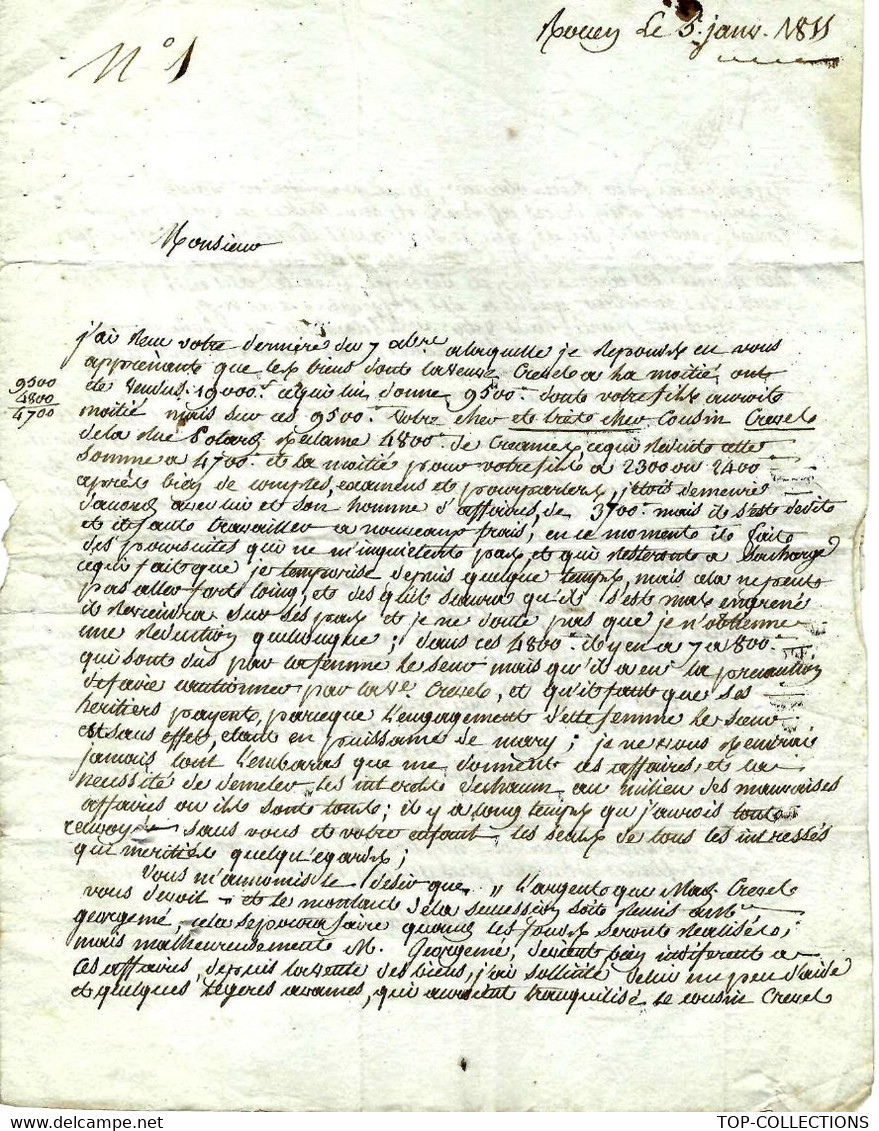 Rouen Le 5 janv. 1811
N° 1
Monsieur
j'ai Recu votre derniere du 7 alaquelle je Reponds en vous
apprenante que les biens donte laveuve Cresel a la moitié, ont
9500
4800
4700
été vendus 19000.# cequi lui donne 9500.# donte votre fils auroite
moitié mais sur ces 9500.# votre cher et trète cher Cousin Cresel
dela Rue Reclame 4800.# de Creances, cequi Reduite cette
somme a 4700.# et la moitié pour votre fils a 2300 ou 2400
après bien de comptes, examens et pourparlers, j'etois demeuré
d'accord avec lui et son homme d'affaires, de 3700.# mais il s'este dedite
et il faute travailler a nouveaux frais, en ce momente il faite
des poursuites qui ne m'inquietente pas, et qui Resterante a Sacharge
cequi faitque je temporise depuis quelque temps, mais cela nepeute
pas aller forte loing, et des qu'il scaura qu'il s'est mal engrené
il Reviendra sur ses pas et je ne doute pas que je n'obtienne
une Reduction quelconque; dans ces 4800.# il y en a 7 a 800.#
qui sont dus par lafemme le seur mais qu'il a eu la precaution
defaire cautionner par la Ve. Cresel, et qu'il faut que ses
heritiers payent, parceque l'engagement d'ette femme le sœur
est sans effet, etant en puissance de mary; je ne vous Rendrai
jamais tout l'embaras que me donnent ces affaires, et la
necessité de demeler les interets dechacun au milieu des mauvaises
affaires ou ils sont touts; il y a long temps que j'aurois toute
renvoyé sans vous et votre enfant, les seuls de tous les interessés
qui meritiés quelqu'egards;
Vous m'annoncés le desir que l'argente que Mad. Cresel
vous devoit et le montant dela succession soite Remis a Mr.
georgemé, cela sepoura faire quand les fonds seront Realisés;
mais malheureusement M. Georgemé, devient bien indiferent a
ces affaires, depuis lavente des biens, j'ai sollicité delui un peu d'aide
et quelques legeres avances, qui auroient tranquilisé le cousin Cresel
TOP-COLLECTIONS